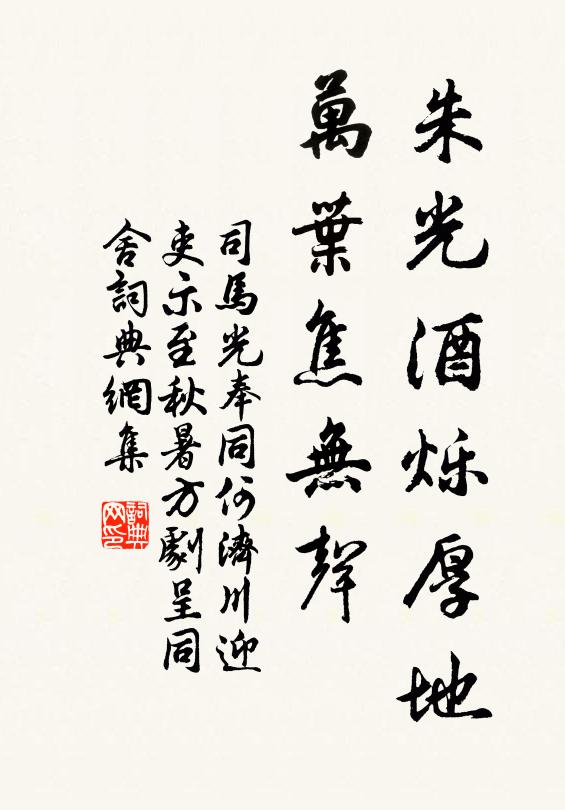 朱光酒烁厚地
萬葉焦無聲
司馬光奉同何濟川迎
吏示至秋暑方劇呈同
舍詞典網集
詞典网印